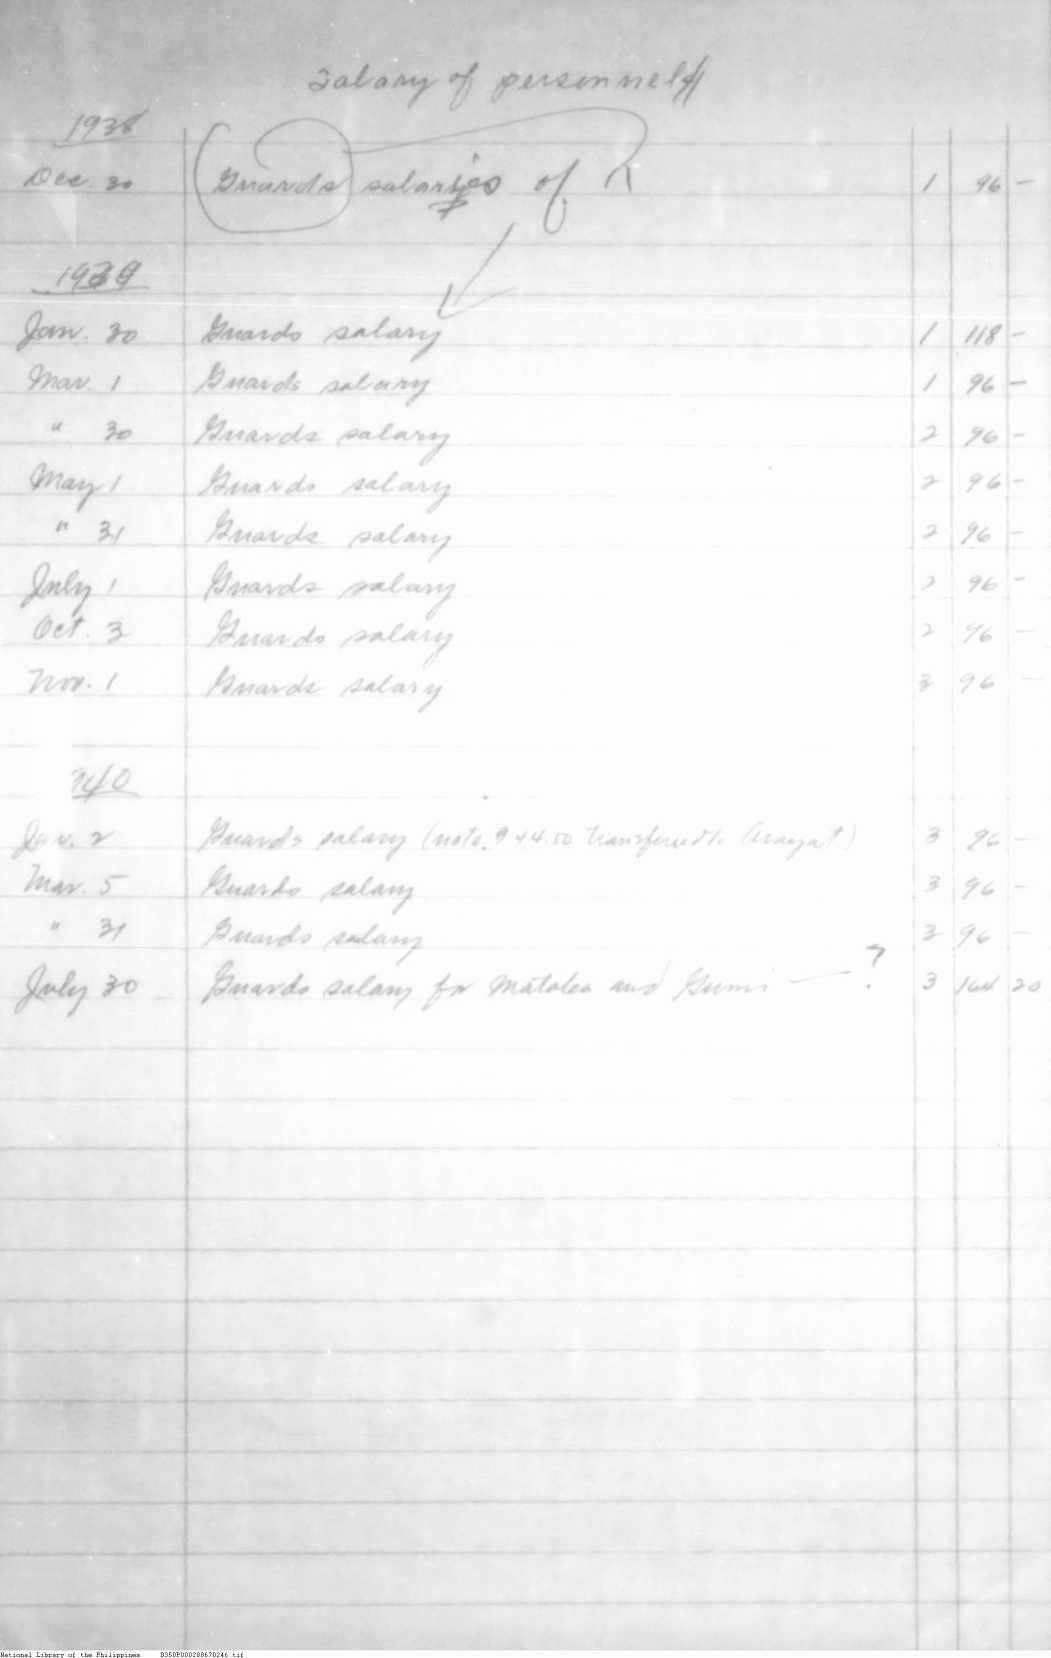 Salary of personnel
1938
Dec. 30 Guards salaries of 1 96 -
1939
Jan. 30 Guards salary 1 118 -
Mar. 1 Guards salary 1 96 -
" 30 Guards salary 2 96 -
May 1 Guards salary 2 96 -
" 31 Guards salary 2 96 -
July 1 Guards salary 2 96 -
Oct. 3 Guards salary 2 96 -
Nov. 1 Guards salary 3 96 -
940
Jan. 2 Guards salary (note. 44.50 transferred to Arayat) 3 96 -
Mar. 5 Guards salary 3 96 -
" 31 Guards salary 3 96 -
July 30 Guards salary for and — ? 3 164 20
National Library of the Philippines D350P000208670246.tif